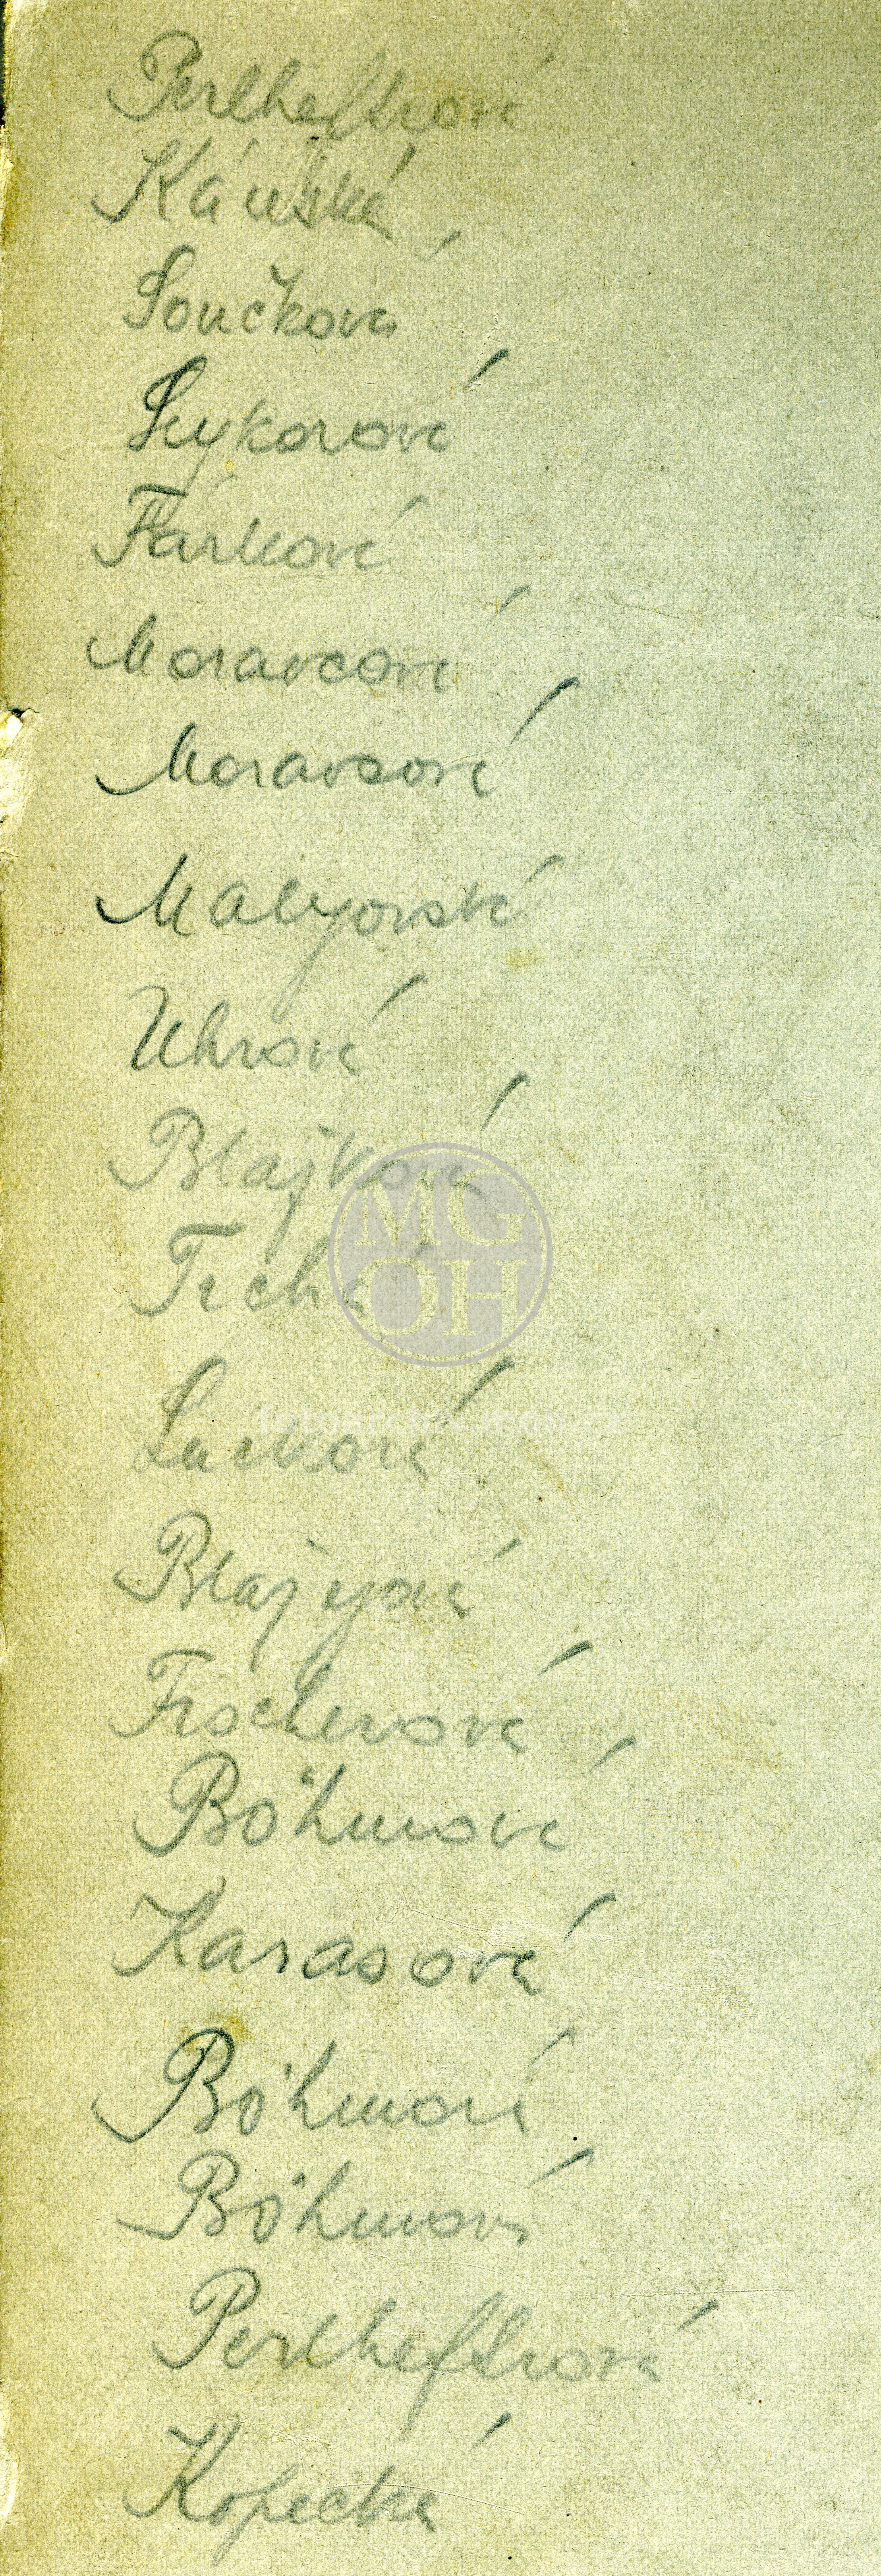 Perlheftrová
Káuská
Součková
Sykorová
Fárková
Moravcová
Moravcová
Malyjovská
Uhrová
Blajková
Tichá
MG
OH
Lucková
Blajejová
Fischerová
Böhmová
Karasová
Böhmová
Böhmová
Perlheftrová
Kopecká